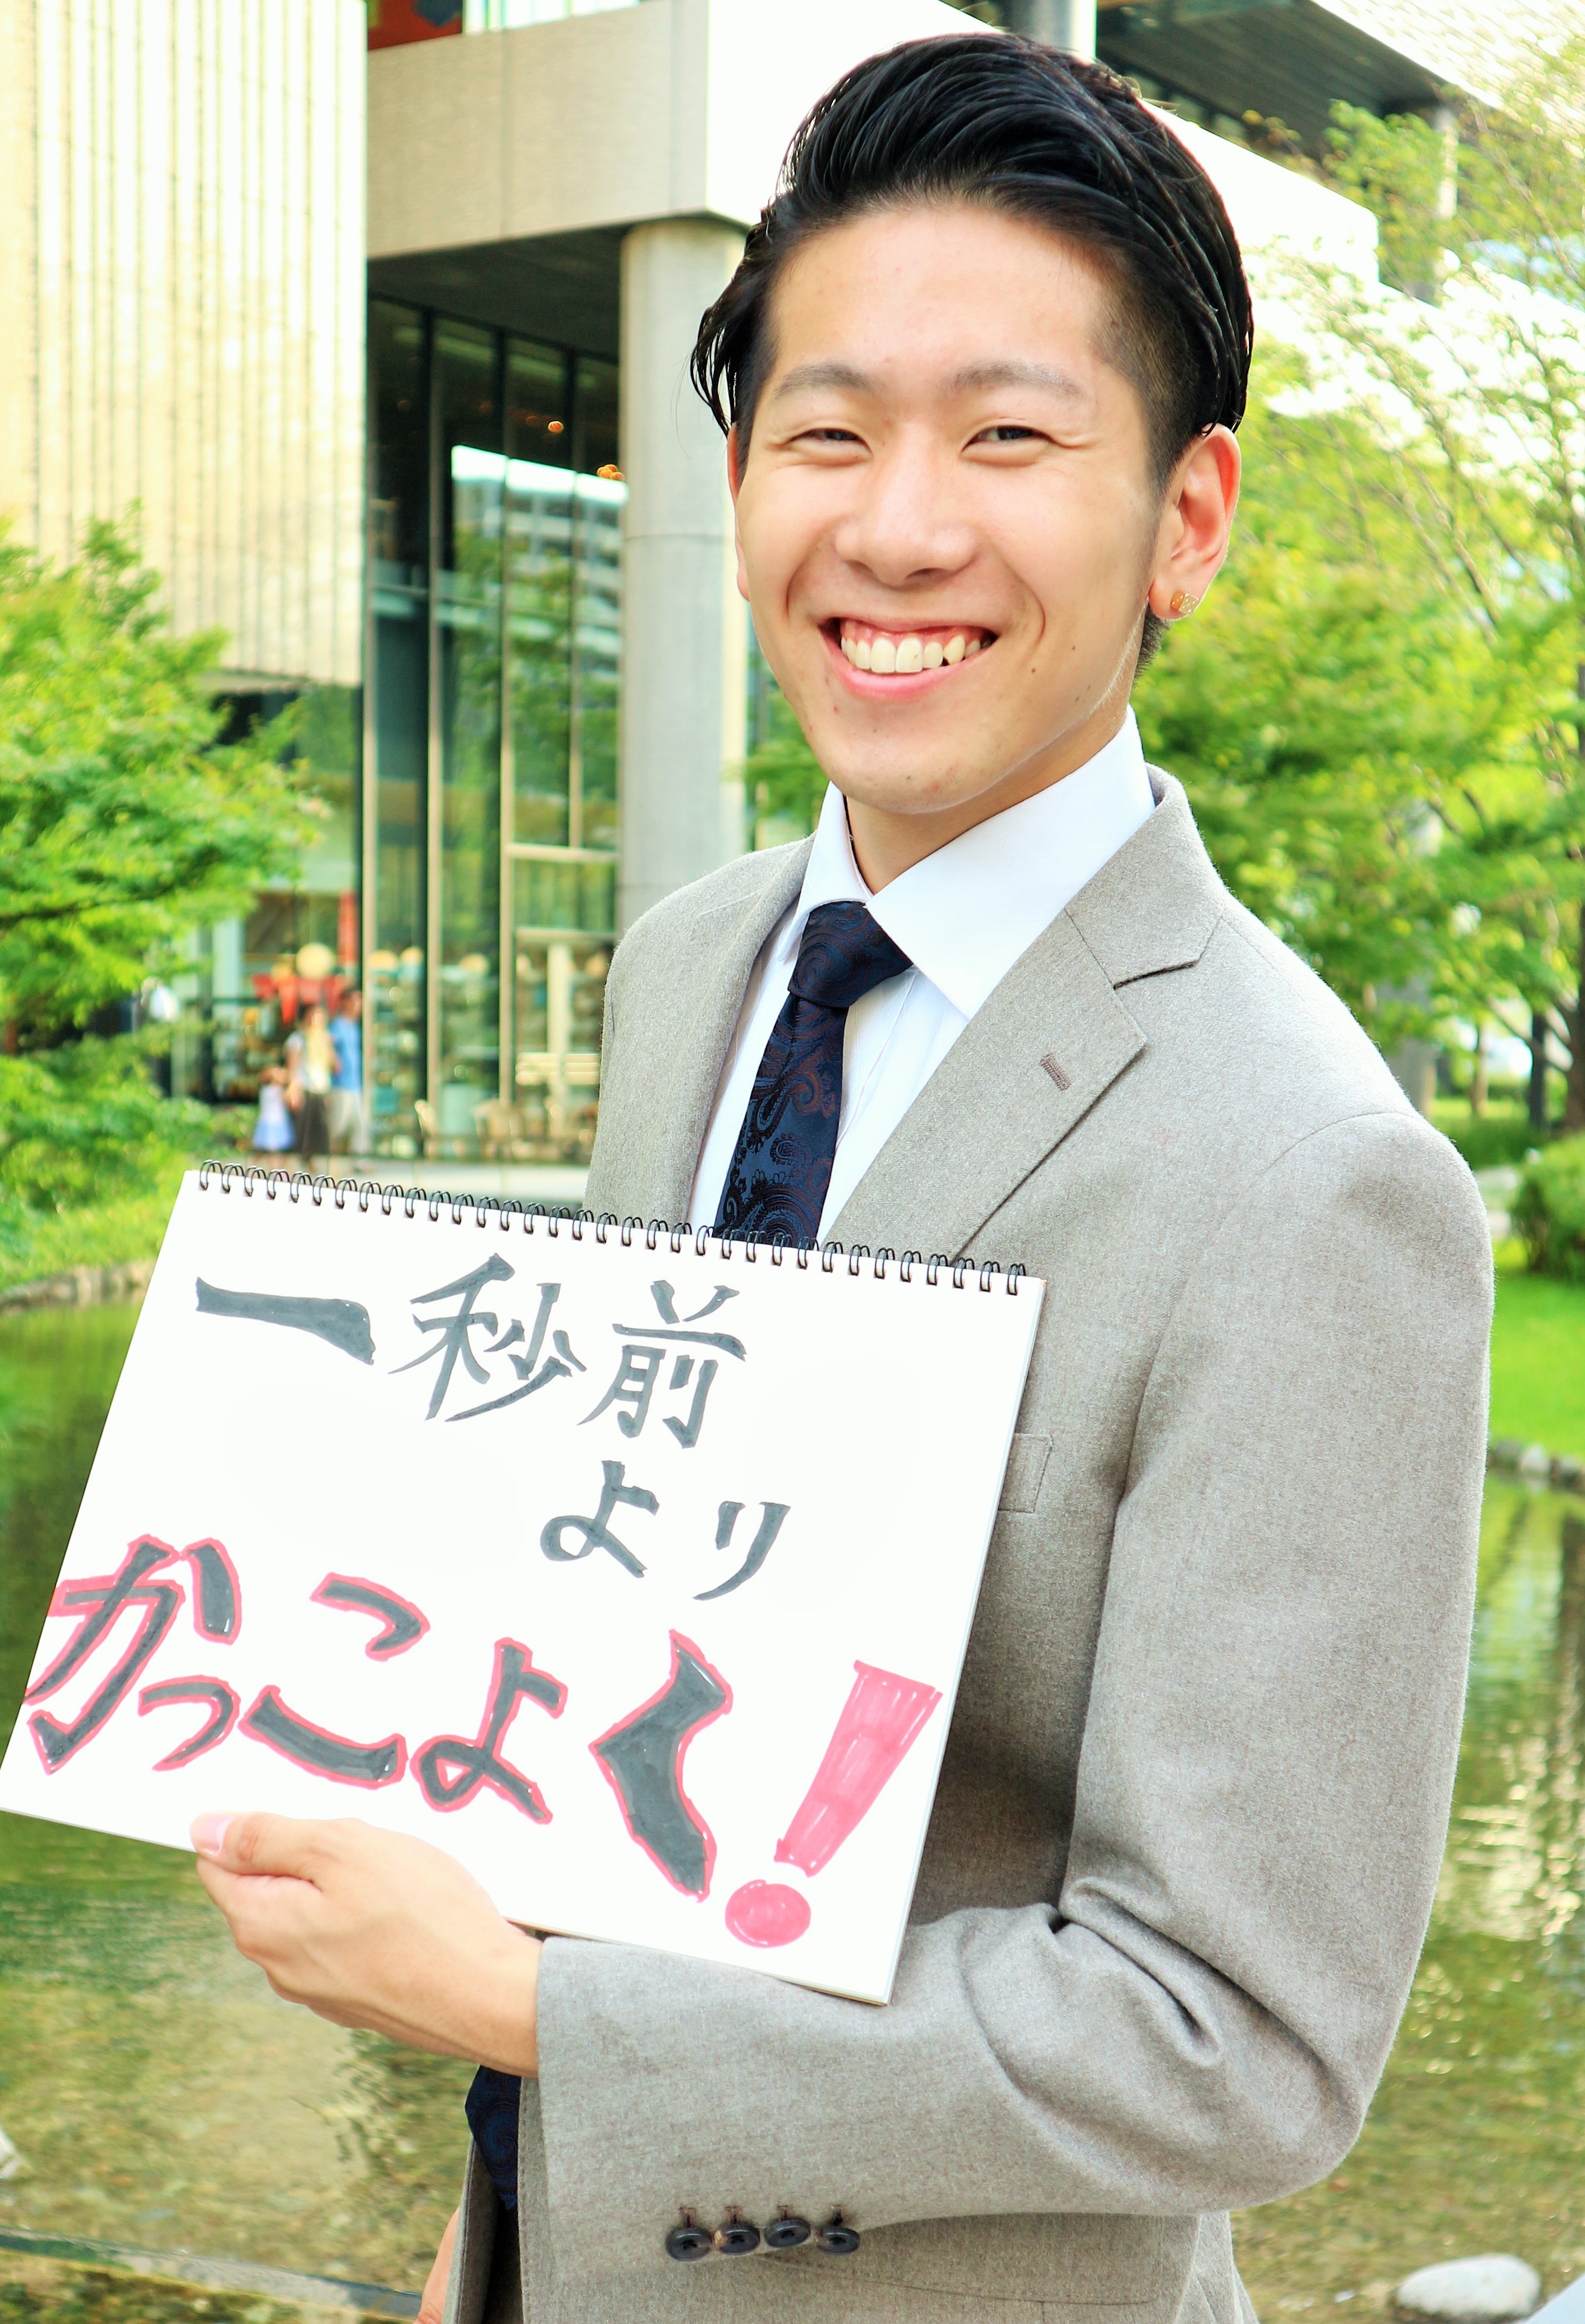 一秒前
より
かっこよく!